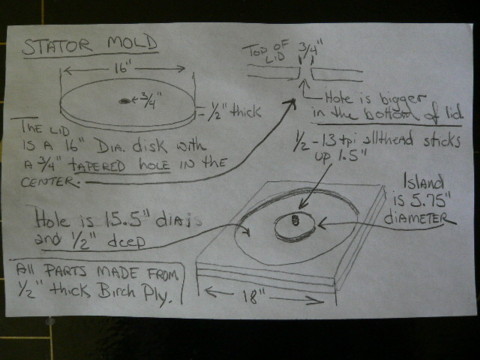 STATOR MOLD
16"
3/4"
1/2" thick
THE LID
IS A 16" DIA. DISK WITH
A 3/4" TAPERED HOLE IN THE
CENTER.
TOP OF
LID
3/4"
Hole is bigger
in the bottom of lid
1/2-13 tpi allthead sticks
up 1.5"
Island
is 5.75"
DIAMETER
Hole is 15.5" dia;
and 1/2" deep
All PARTS MADE FROM
1/2" thick Birch Ply.
18"